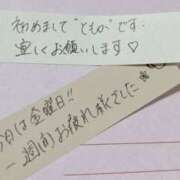 初めまして"ともか"です。
宜しくお願いします♡
今日は金曜日!!
一週間お疲れ様でした